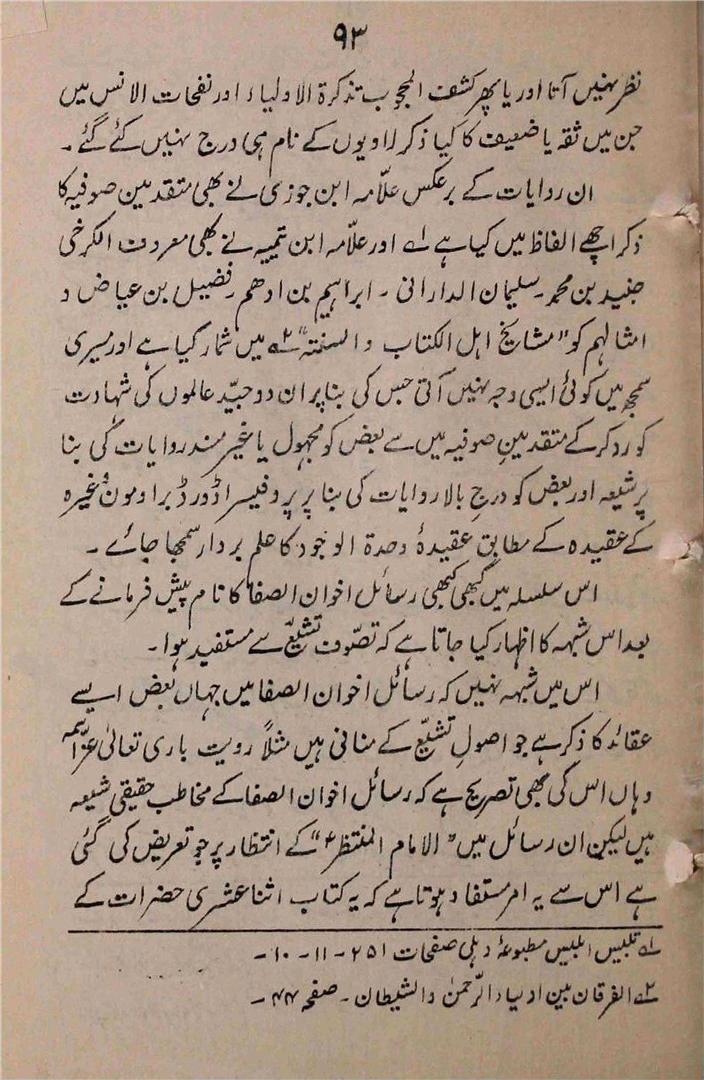 ۹۳
نظر نہیں آتا اور یا پھر کشف المحجوب تذکرۃ الاولیاء اور نفحات الانس میں
جن میں ثقہ یا ضعیف کا کیا ذکر راویوں کے نام ہی درج نہیں کئے گئے ۔
ان روایات کے برعکس علّامہ ابن جوزی نے بھی متقدمین صوفیہ کا
ذکر اچھے الفاظ میں کیا ہے ۱؎ اور علّامہ ابن تیمیہ نے بھی معروف الکرخی
جنید بن محمد ۔ سلیمان الدارانی ۔ ابراہیم بن ادھم ۔ فضیل بن عیاض و
امثالہم کو “مشایخ اہل الکتاب والسنتہ” ۲؎ میں شمار کیا ہے اور میری
سمجھ میں کوئی ایسی وجہ نہیں آتی جس کی بنا پر ان دو جیّد عالموں کی شہادت
کو رد کر کے متقدمینِ صوفیہ میں سے بعض کو مجہول یا غیر مستند روایات کی بنا
پر شیعہ اور بعض کو درجِ بالا روایات کی بنا پر پروفیسر اڈورڈ براومون وغیرہ
کے عقیدہ کے مطابق عقیدۂ وحدۃ الوجود کا علم بردار سمجھا جائے ۔
اس سلسلہ میں کبھی کبھی رسائل اخوان الصفا کا نام پیش فرمانے کے
بعد اس شبہہ کا اظہار کیا جاتا ہے کہ تصوّف تشیّع سے مستفید ہوا ۔
اس میں شبہہ نہیں کہ رسائل اخوان الصفا میں جہاں بعض ایسے
عقائد کا ذکر ہے جو اصولِ تشیّع کے منافی ہیں مثلاً رویت باری تعالیٰ عزّاسمہ
وہاں اس کی بھی تصریح ہے کہ رسائل اخوان الصفا کے مخاطب حقیقی شیعہ
ہیں لیکن ان رسائل میں “الامام المنتظر؏” کے انتظار پر جو تعریض کی گئی
ہے اس سے یہ امر مستفاد ہوتا ہے کہ یہ کتاب اثنا عشری حضرات کے
۱؎ تلبیس ابلیس مطبوعۂ دہلی صفحات ۲۵۱ - ۱۱ - ۱۰ -
۲؎ الفرقان بین اولیاء الرّحمٰن والشیطان ۔ صفحہ ۴۴ -